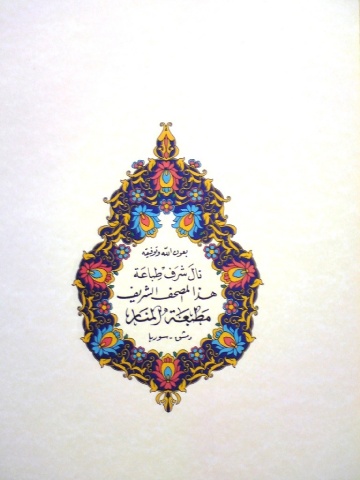 بعون الله وتوفيقه
نال شرف طباعة
هذا المصحف الشريف
مطبعة المنار
دمشق - سوريا